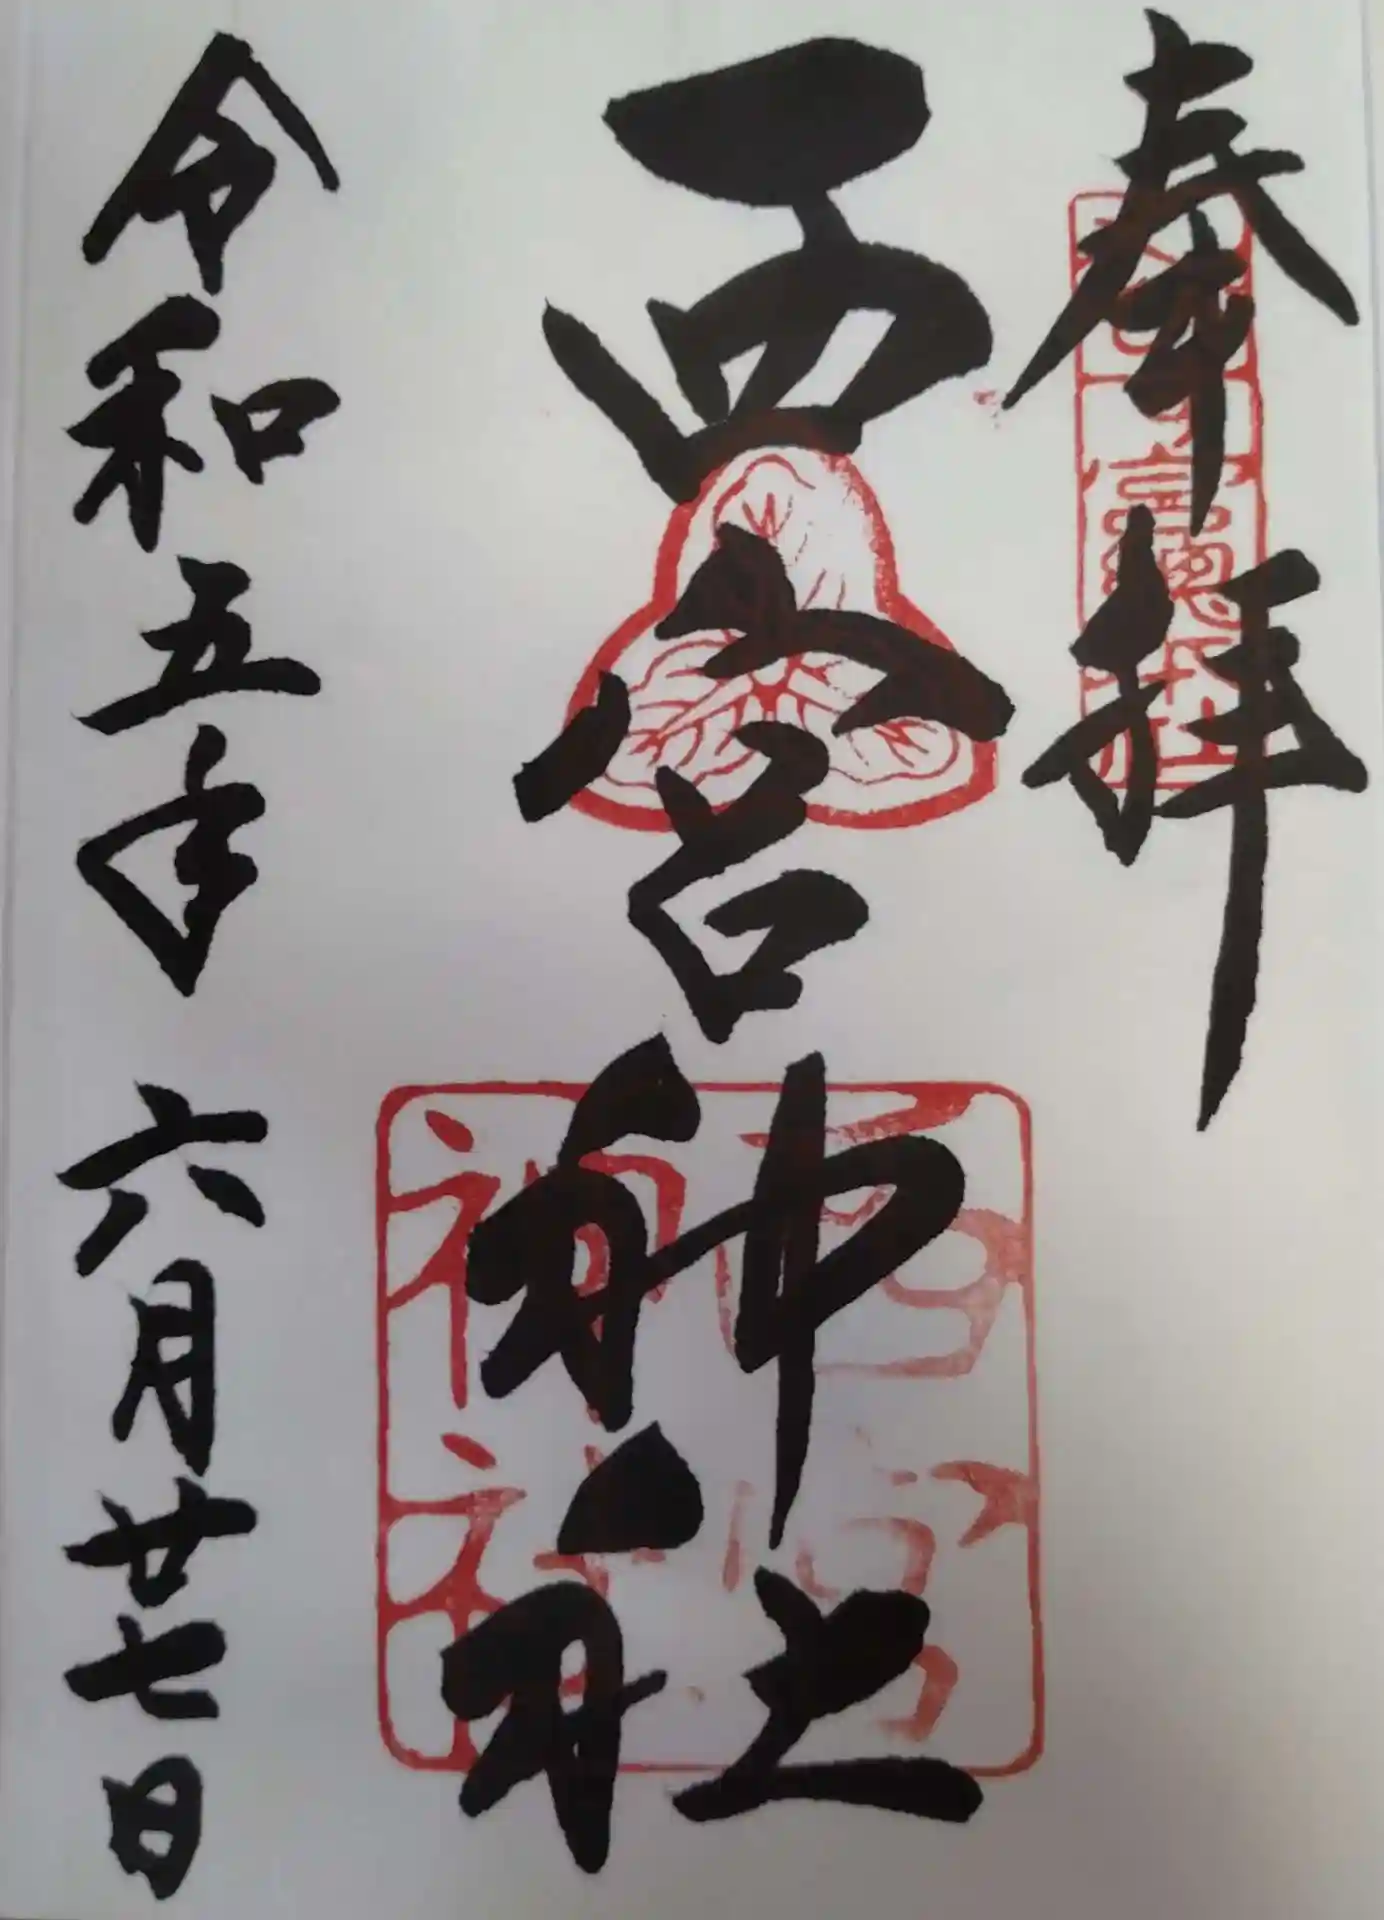 奉拝
西宮神社
令和五年 六月廿七日
西宮神社